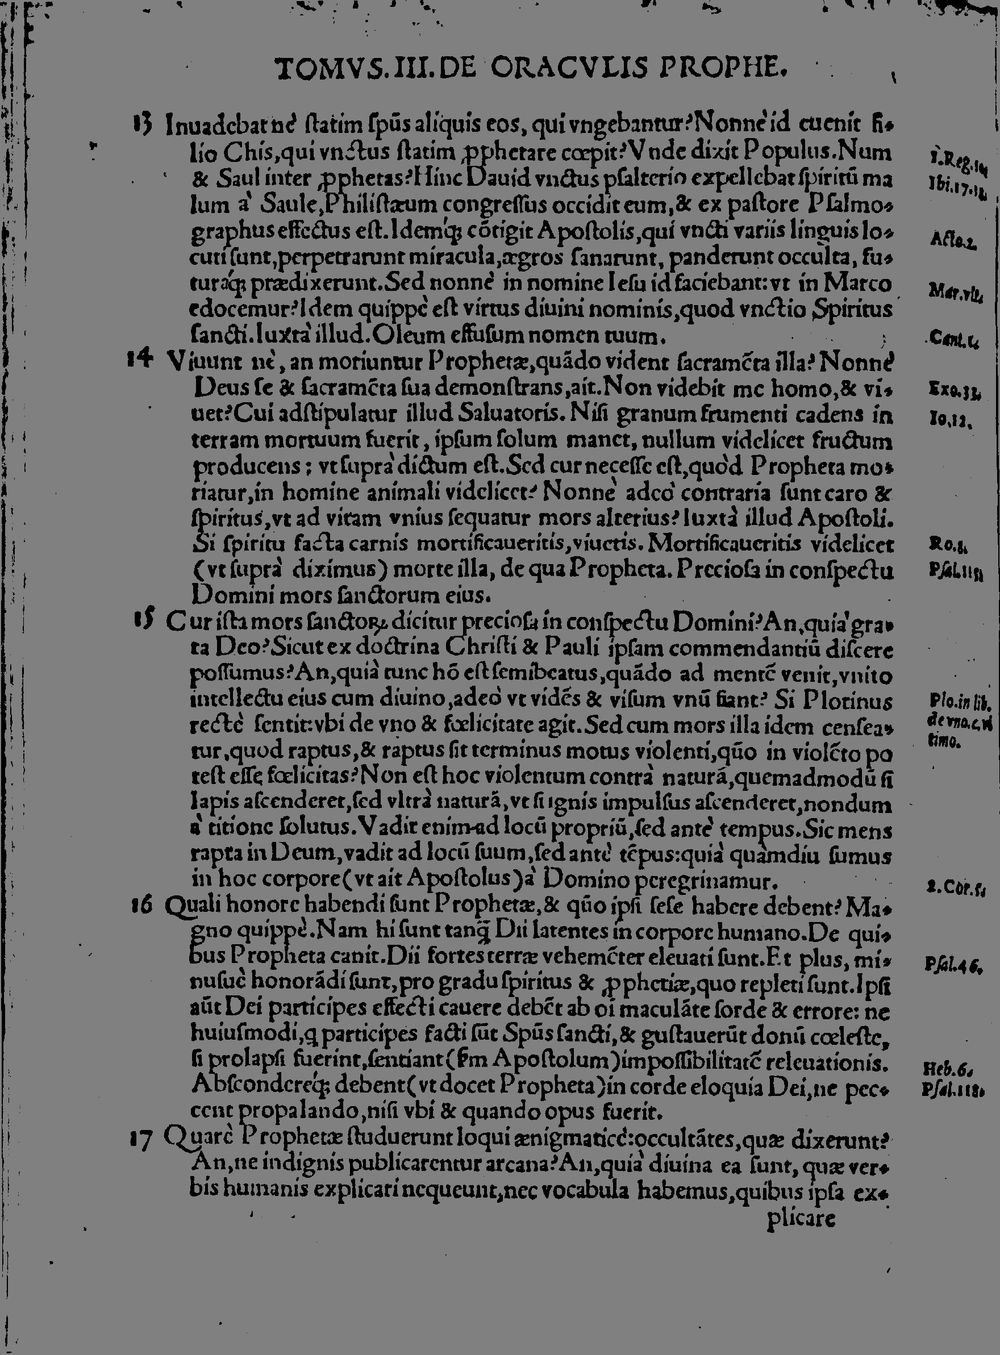 TOMVS.III.DE ORACVLIS PROPHE.
13 Inuadebat ne' ſtatim ſpūs aliquis eos, qui vngebantur? Nonne' id euenit fi-
lio Chis, qui vnctus ſtatim ꝓphetare cœpit? Vnde dixit Populus. Num
& Saul inter ꝓphetas? Hinc Dauid vnctus pſalterio expellebat ſpiritū ma
lum a' Saule, Philiſtæum congreſſus occidit eum, & ex paſtore Pſalmo-
graphus effectus eſt. Idemq́; cōtigit Apoſtolis, qui vncti variis linguis lo-
cuti ſunt, perpetrarunt miracula, ægros ſanarunt, panderunt occulta, fu-
turaq́; prædixerunt. Sed nonne' in nomine Ieſu id faciebant: vt in Marco
edocemur? Idem quippe' eſt virtus diuini nominis, quod vnctio Spiritus
ſancti. Iuxta' illud. Oleum effuſum nomen tuum.
14 Viuunt ne', an moriuntur Prophetæ, quādo vident ſacramēta illa? Nonne'
Deus ſe & ſacramēta ſua demonſtrans, ait. Non videbit me homo, & vi-
uet? Cui adſtipulatur illud Saluatoris. Niſi granum frumenti cadens in
terram mortuum fuerit, ipſum ſolum manet, nullum videlicet fructum
producens: vt ſupra' dictum eſt. Sed cur neceſſe eſt, quo'd Propheta mo-
riatur, in homine animali videlicet? Nonne' adeo' contraria ſunt caro &
ſpiritus, vt ad vitam vnius ſequatur mors alterius? Iuxta' illud Apoſtoli.
Si ſpiritu facta carnis mortificaueritis, viuetis. Mortificaueritis videlicet
(vt ſupra' diximus) morte illa, de qua Propheta. Precioſa in conſpectu
Domini mors ſanctorum eius.
15 Cur iſta mors ſanctoꝝ dicitur precioſa in conſpectu Domini? An, quia' gra-
ta Deo? Sicut ex doctrina Chriſti & Pauli ipſam commendantiū diſcere
poſſumus? An, quia' tunc hō eſt ſemibeatus, quādo ad mentē venit, vnito
intellectu eius cum diuino, adeo' vt vidēs & viſum vnū fiant? Si Plotinus
recte' ſentit: vbi de vno & fœlicitate agit. Sed cum mors illa idem cenſea-
tur, quod raptus, & raptus ſit terminus motus violenti, quō in violēto po
teſt eſſe fœlicitas? Non eſt hoc violentum contra' naturā, quemadmodū ſi
lapis aſcenderet, ſed vltra' naturā, vt ſi ignis impulſus aſcenderet, nondum
a' titione ſolutus. Vadit enim ad locū propriū, ſed ante' tempus. Sic mens
rapta in Deum, vadit ad locū ſuum, ſed ante' tēpus: quia' qua'mdiu ſumus
in hoc corpore (vt ait Apoſtolus) a' Domino peregrinamur.
16 Quali honore habendi ſunt Prophetæ, & quō ipſi ſeſe habere debent? Ma-
gno quippe'. Nam hi ſunt tanq̄ Dii latentes in corpore humano. De qui-
bus Propheta canit. Dii fortes terræ vehemēter eleuati ſunt. Et plus, mi-
nuſue' honorādi ſunt, pro gradu ſpiritus & ꝓphetiæ, quo repleti ſunt. Ipſi
aūt Dei participes effecti cauere debēt ab oī maculāte ſorde & errore: ne
huiuſmodi, q participes facti ſūt Spūs ſancti, & guſtauerūt donū cœleſte,
ſi prolapſi fuerint, ſentiant (ſm Apoſtolum) impoſſibilitatē releuationis.
Abſcondereq́; debent (vt docet Propheta) in corde eloquia Dei, ne pec-
cent propalando, niſi vbi & quando opus fuerit.
17 Quare' Prophetæ ſtuduerunt loqui ænigmatice': occultātes, quæ dixerunt?
An, ne indignis publicarentur arcana? An, quia' diuina ea ſunt, quæ ver-
bis humanis explicari nequeunt, nec vocabula habemus, quibus ipſa ex-
plicare
1.Reg.10
Ibi.17.18.
Acto.2.
Mar.vlt.
Cant.1.
Exo.33.
Io.12.
Ro.8.
Pſal.115
Plo.in lib.
de vno.c.vl
timo.
2.Cor.5.
Pſal.46.
Heb.6.
Pſal.118.